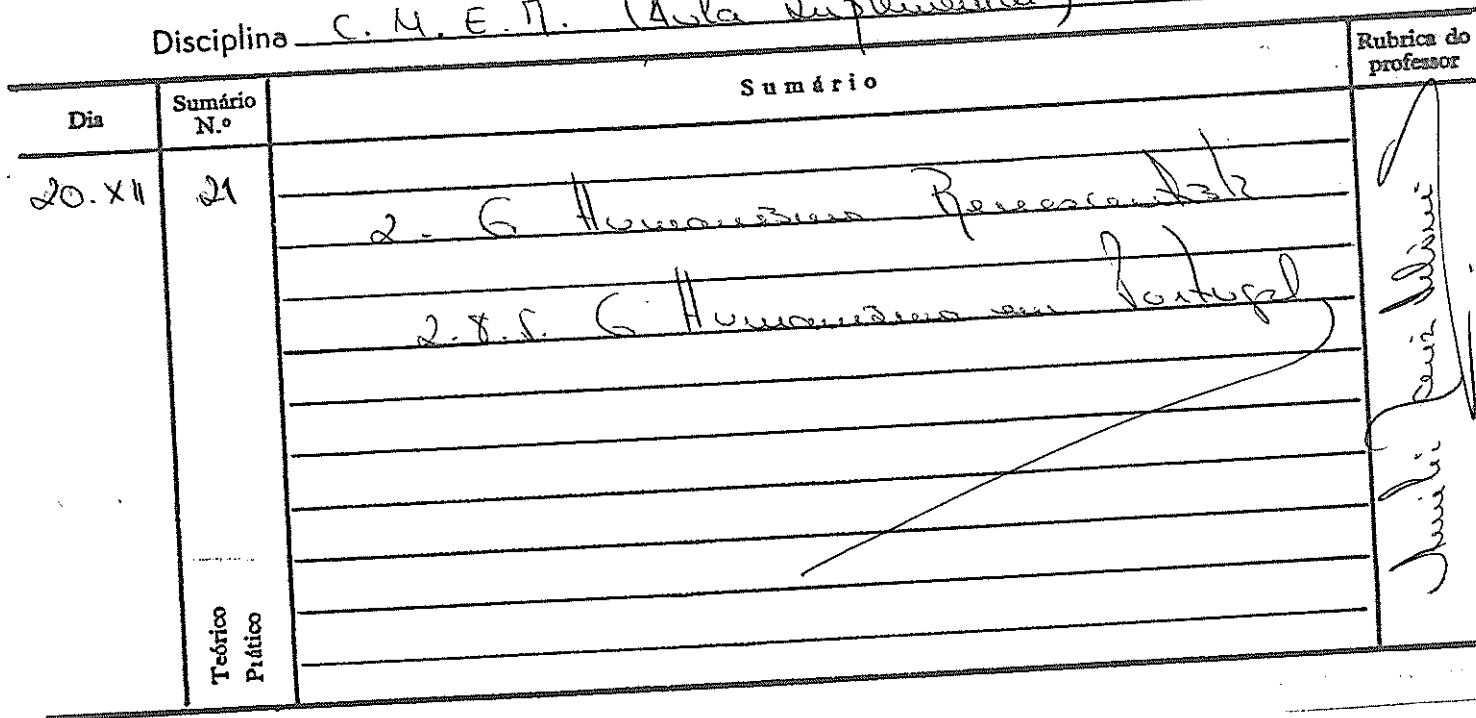 Disciplina C. M. E. M. (Aula Suplementar)
Dia
Sumário N.º
Sumário
Rubrica do professor
20.XII
21
2. O Humanismo Renascentista
2.8.5. O Humanismo em Portugal
Teórico
Prático